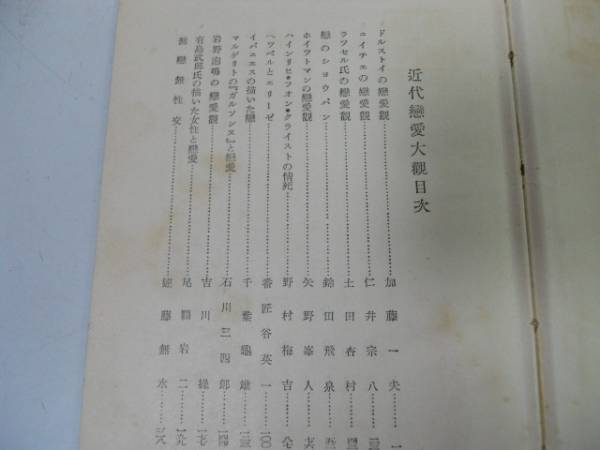 近代戀愛大觀目次
ドルストイの戀愛觀……加藤一夫……一
ニイチエの戀愛觀……仁井宗八……
ラツセル氏の戀愛觀……土田杏村……
戀のシヨウパン……鈴田飛泉……
ホイツトマンの戀愛觀……矢野峯人……
ハインリヒ・フオン・クライストの情死……野村梅吉……
ヘツベルとエリーゼ……番匠谷英一……一〇〇
イバニエスの描いた戀……千葉龜雄……
マルグリトの『ガルソンヌ』と戀愛……石川三四郎……
岩野泡鳴の戀愛觀……吉川……
有島武郎氏の描いた女性と戀愛……尾關岩二……
無戀無性交……遠藤無水……